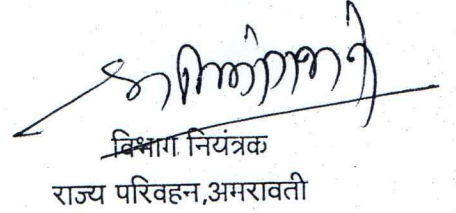 विभाग नियंत्रक
राज्य परिवहन,अमरावती